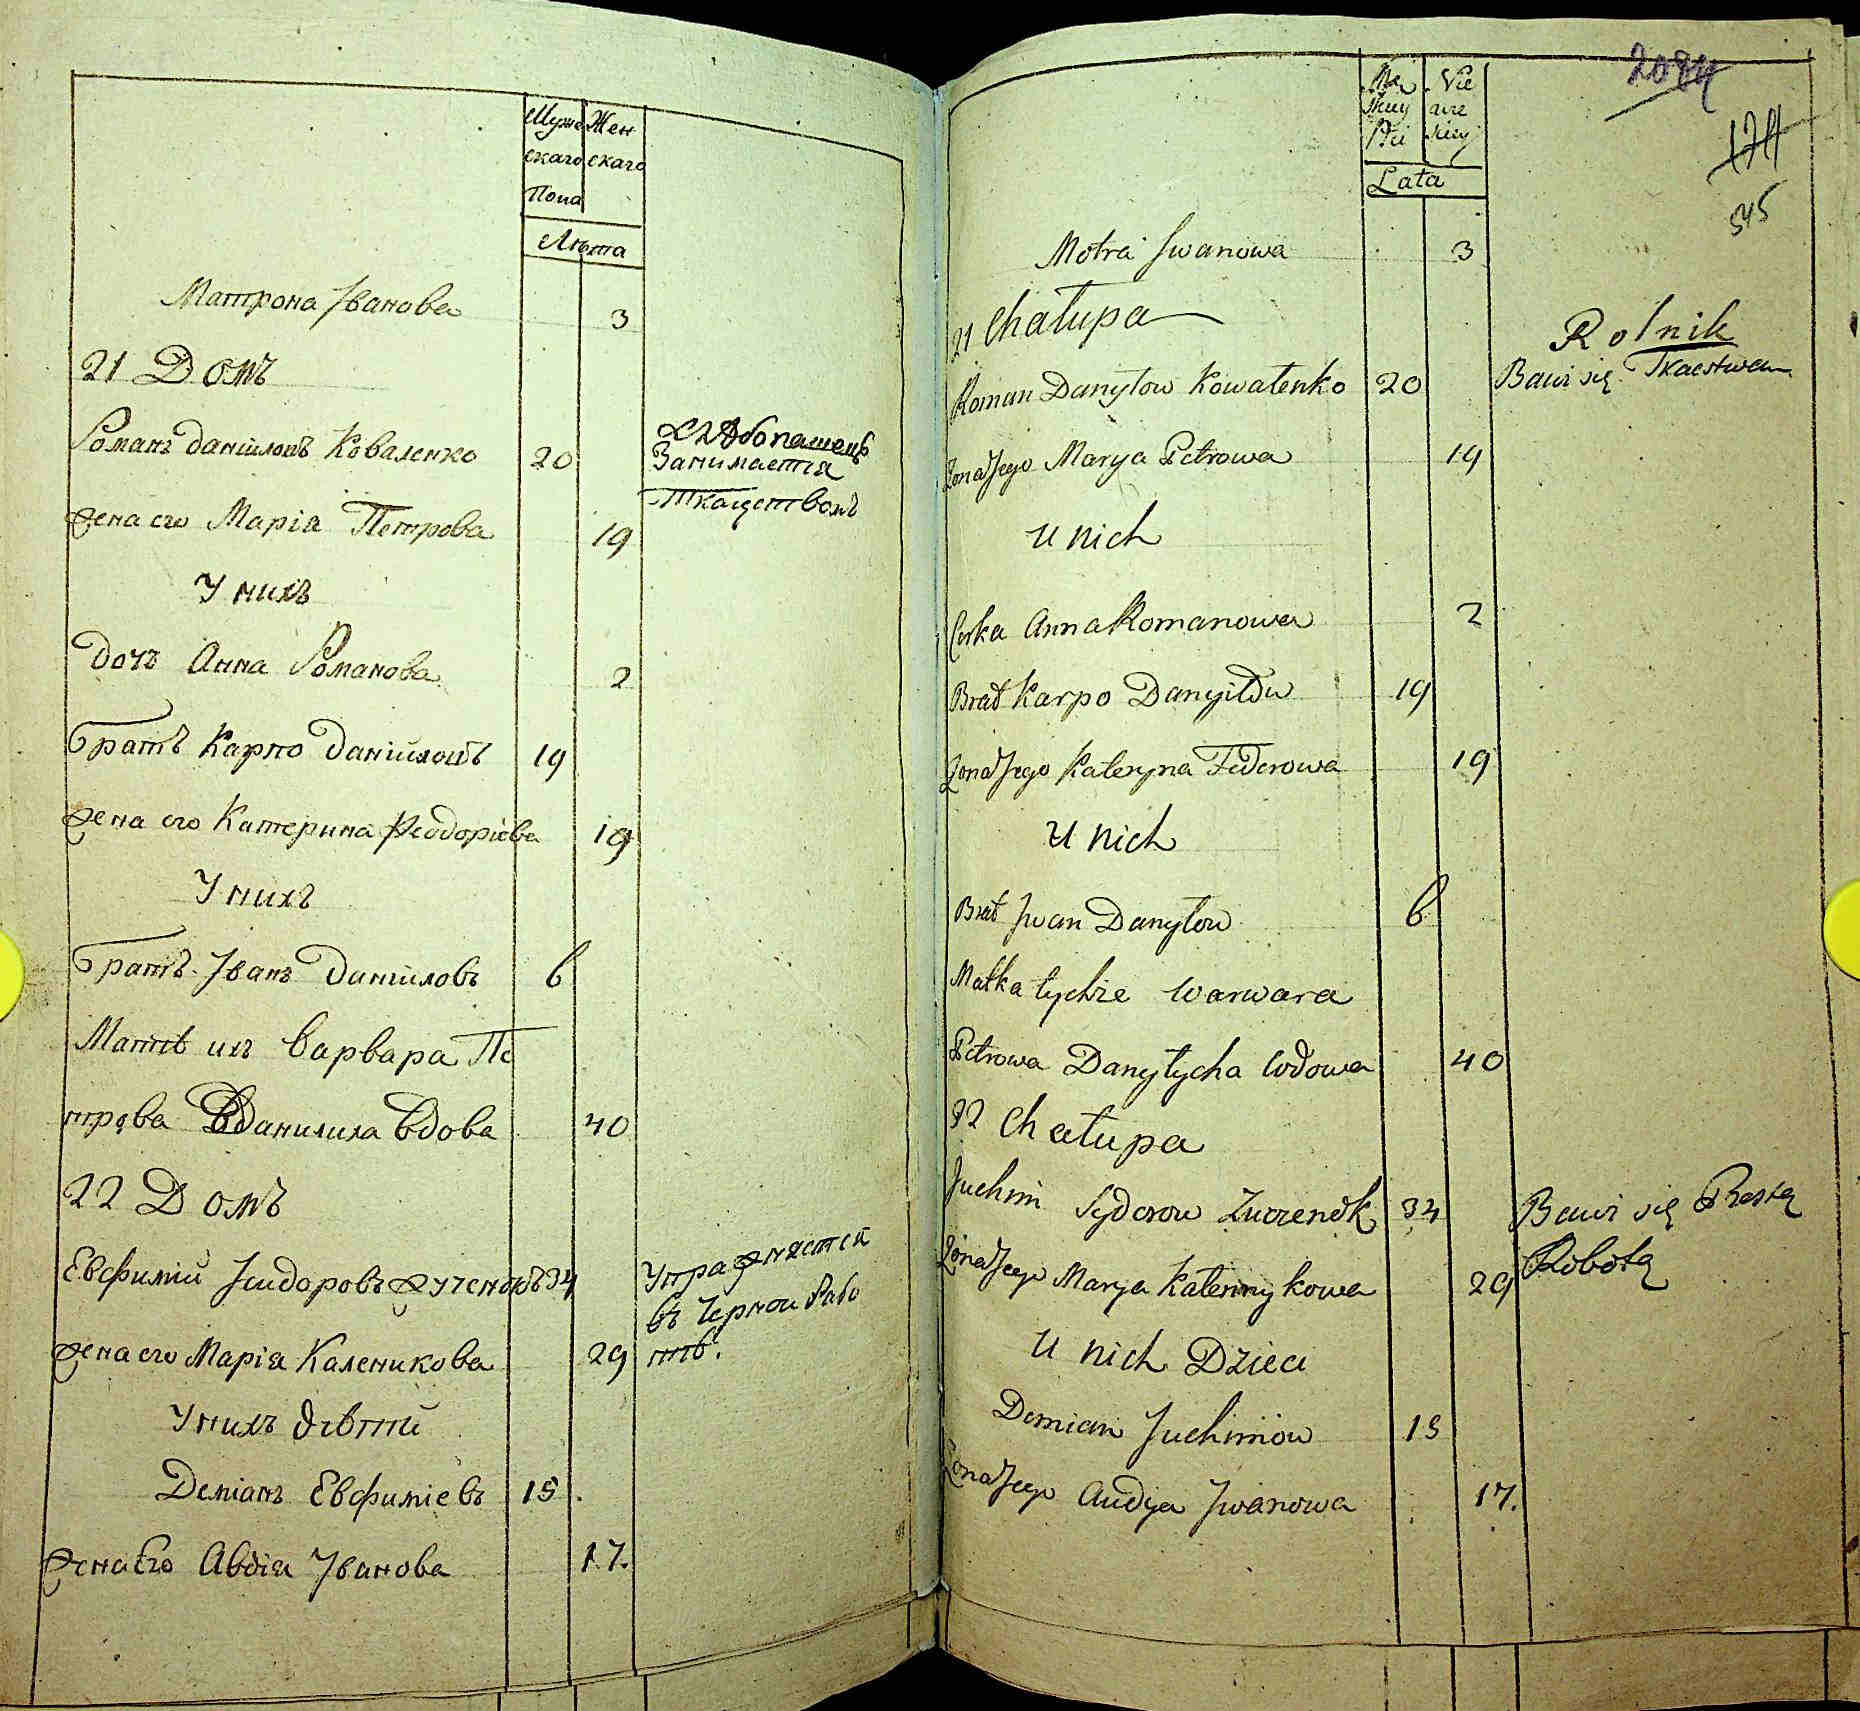 Муже Жен
скаго скаго
Пола
Лѣта
Матрона Іванова 3
21 Домъ
Романъ Даніиловъ Коваленко 20
Хлѣбопашецъ
Занимается
Ткацствомъ
жена его Марія Петрова 19
У нихъ
дочъ Анна Романова 2
Братъ Карпо Даніиловъ 19
жена его Катерина Феодоріева 19
У нихъ
Братъ Іванъ Даніиловъ 6
Матѣ ихъ Варвара Пе
трова Данилиха Вдова 40
22 Домъ
Евфимій Ісидоровъ Зученокъ 34
Упражняется
въ Черной Рабо
тѣ.
жена его Марія Каленикова 29
У нихъ дѣтй
Деміанъ Евфиміевъ 15
жена Его Авдія Іванова 17.
2084
174
545
Mę Nie
skiey wie
Płci skiey
Lata
Motra Iwanowa 3
21 Chałupa
Roman Danyłow Kowalenko 20
Rolnik
Bawi się Tkactwem
Żona Jego Marya Petrowa 19
U nich
Corka Anna Romanowa 2
Brat Karpo Danyiłow 19
Żona Jego Kateryna Federowa 19
U nich
Brat Iwan Danyłow 6
Matka tychże Warwara
Petrowa Danyłycha Wdowa 40
22 Chałupa
Juchim Sydorow Zuczenok 34
Bawi się Prostą
Robotą
Żona Jego Marya Kalennykowa 29
U nich Dzieci
Demian Juchimow 15
Żona Jego Audya Iwanowa 17.